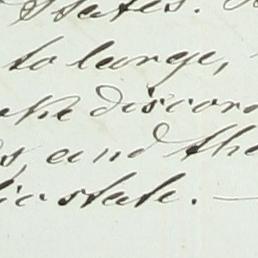 States.
to large,
the discor
s, and the
lic state. —